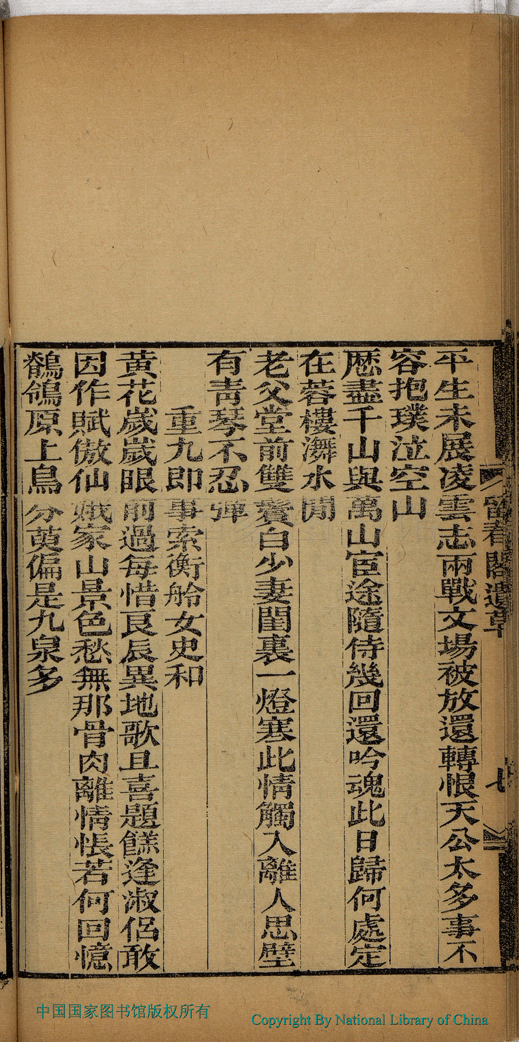 留春閣遺草
七
平生未展凌雲志兩戰文場被放還轉恨天公太多事不
容抱璞泣空山
歷盡千山與萬山宦途隨侍幾回還吟魂此日歸何處定
在蓉樓灊水間
老父堂前雙鬢白少妻閨裏一燈寒此情觸入離人思壁
有青琴不忍彈
重九即事索衡舲女史和
黃花歲歲眼前過每惜良辰異地歌且喜題糕逢淑侶敢
因作賦傲仙娥家山景色愁無那骨肉離情悵若何回憶
鶺鴒原上鳥分萸偏是九泉多
中国国家图书馆版权所有
Copyright By National Library of China